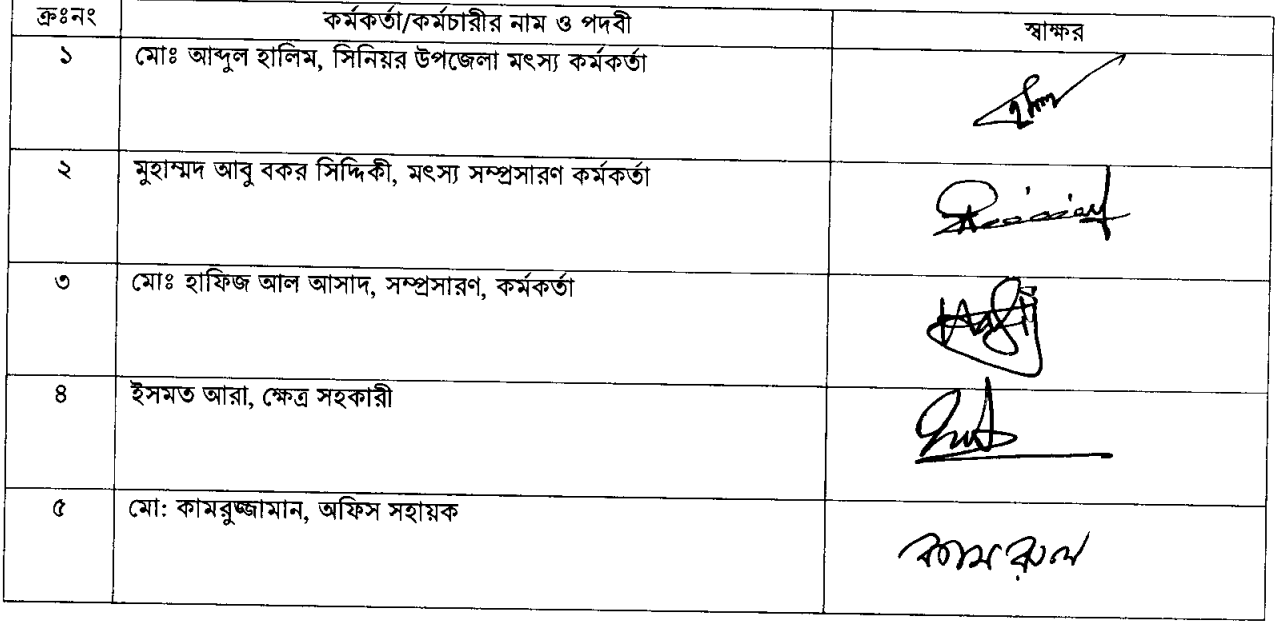 ক্রঃনং কর্মকর্তা/কর্মচারীর নাম ও পদবী স্বাক্ষর
১ মোঃ আব্দুল হালিম, সিনিয়র উপজেলা মৎস্য কর্মকর্তা
২ মুহাম্মদ আবু বকর সিদ্দিকী, মৎস্য সম্প্রসারণ কর্মকর্তা
৩ মোঃ হাফিজ আল আসাদ, সম্প্রসারণ, কর্মকর্তা
৪ ইসমত আরা, ক্ষেত্র সহকারী
৫ মো: কামরুজ্জামান, অফিস সহায়ক